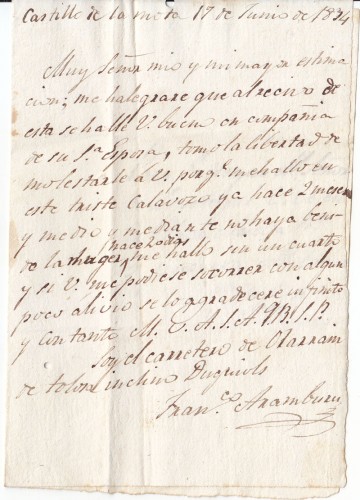 Castillo de la mota 17 de Junio de 1834
Muy Señor mio y mi mayor estima
cion; me halegrare que al recivo de
esta se halle V. bueno en compañia
de su S.ª Esposa, tomo la libertad de
molestarle á V. porq.e me hallo en
este triste Calavozo ya hace 2 meses
y medio y mediante no haya beni-
do la muger hace 20 dias, me hallo sin un cuarto
y si V. me podiese socorrer con algun
poco alivio se lo agradecere infinito
y con tanto M. V. A. S. A. Q. B. S. P.
soy el carretero de Olarrain
de tolosa
Fran.co Aramburu